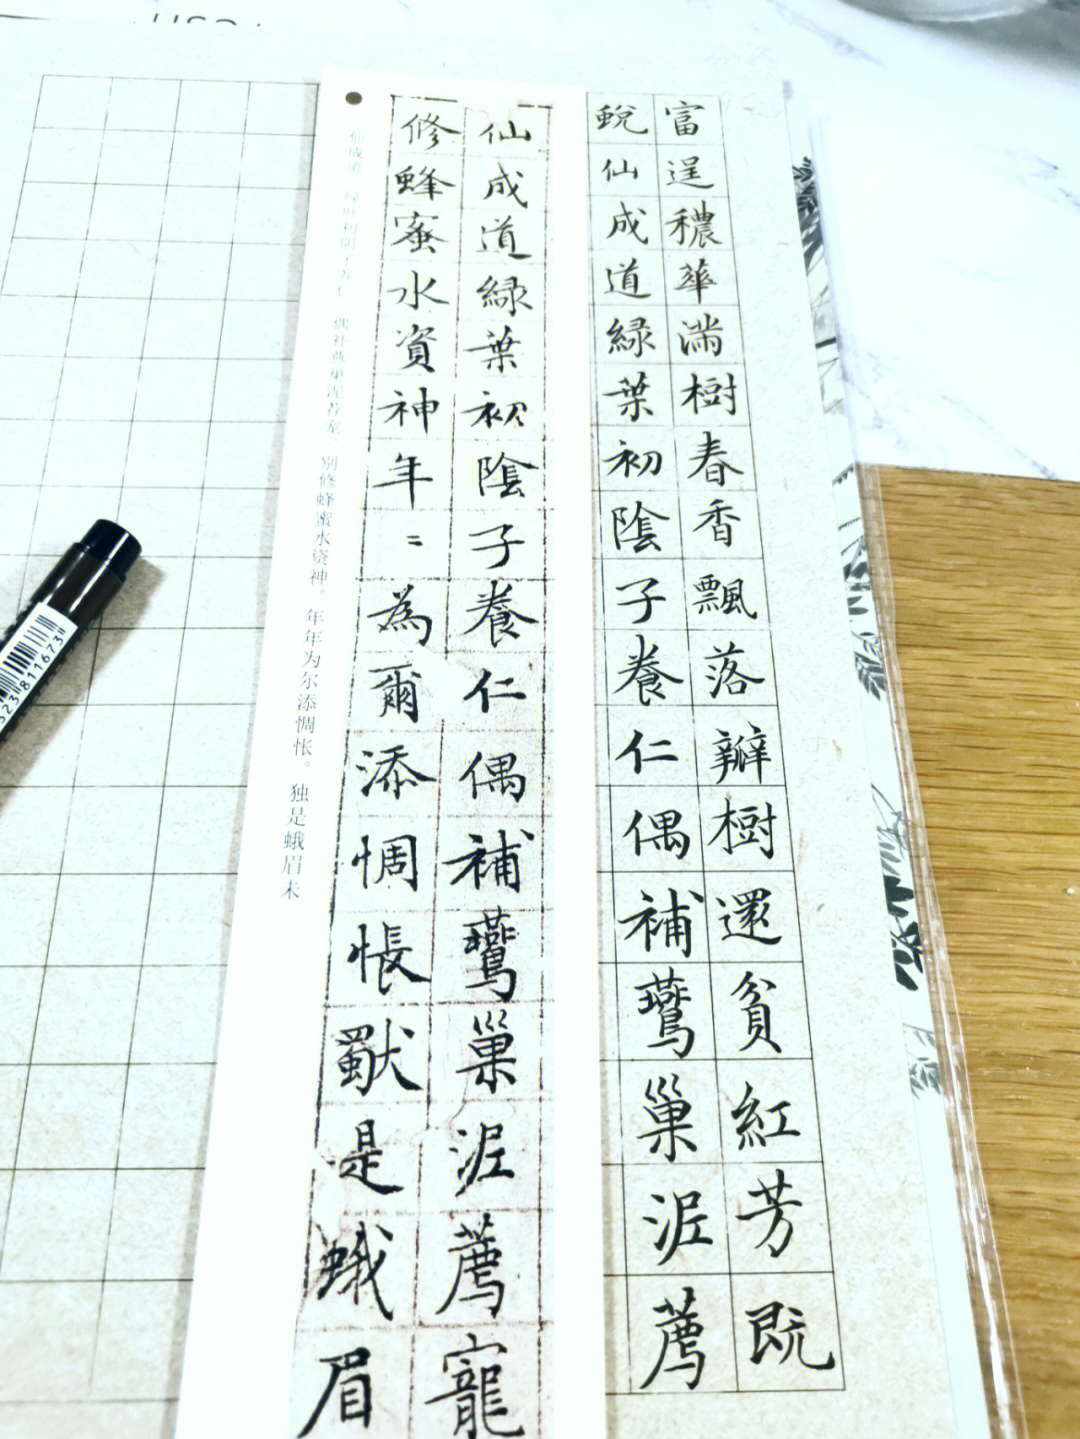 富逞穠華滿樹春香飄落瓣樹還貧紅芳既
蛻仙成道綠葉初陰子養仁偶補鷰巢泥薦
仙成道綠葉初陰子養仁偶補鷰巢泥薦寵
修蜂蜜水資神年〻為爾添惆悵獨是蛾眉
仙成道。绿叶初阴子养仁。偶补燕巢泥荐宠。别修蜂蜜水资神。年年为尔添惆怅。独是蛾眉未
523811673